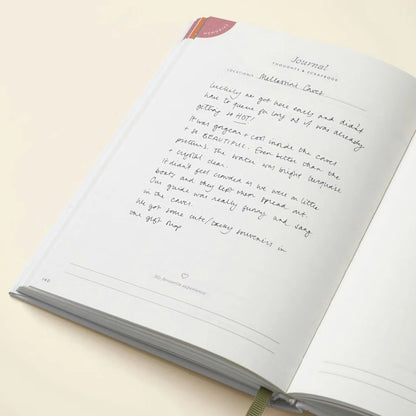 MEMORIES
Journal
THOUGHTS & SCRAPBOOK
LOCATION: Melissani Caves
Luckily we got here early and didn't
have to queue for long as it was already
getting so HOT!
It was gorgeous + cool inside the caves
+ so BEAUTIFUL. Even better than the
pictures. The water was bright turquoise
+ crystal clear.
It didn't feel crowded as we were in little
boats and they kept them spread out.
Our guide was really funny and sang
in the cave.
We got some cute/tacky souvenirs in
the gift shop
My favourite experience
142